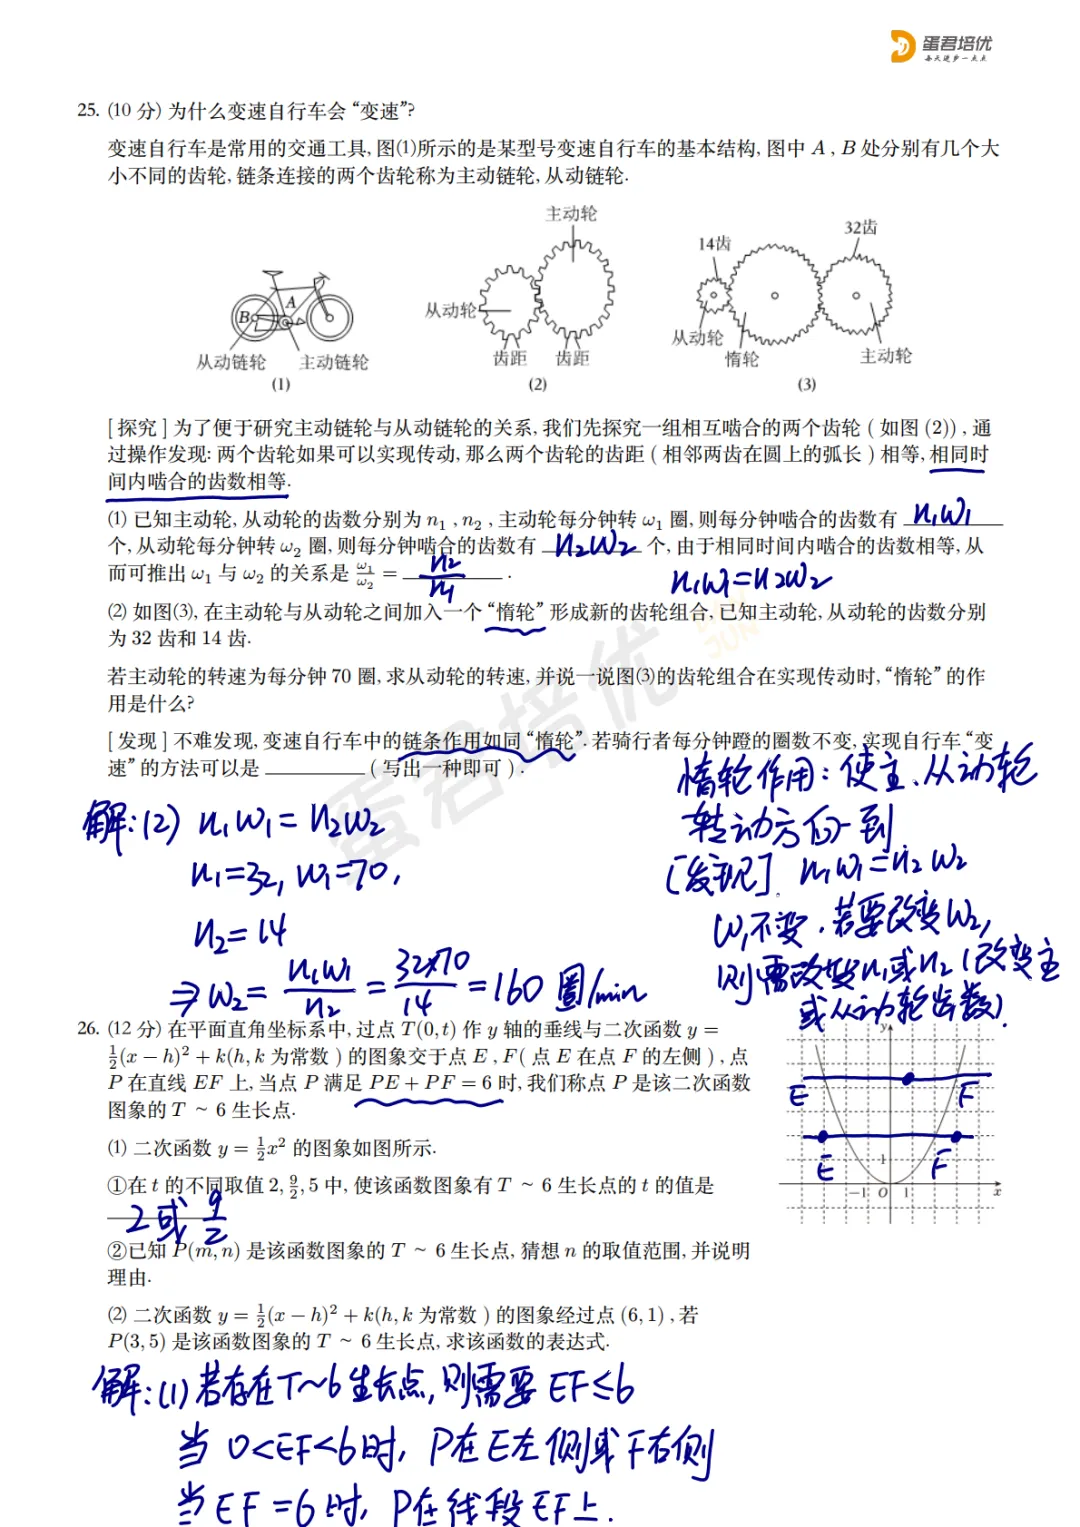 蛋君培优
每天进步一点点
25. (10 分) 为什么变速自行车会 “变速”?
变速自行车是常用的交通工具, 图⑴所示的是某型号变速自行车的基本结构, 图中 A , B 处分别有几个大
小不同的齿轮, 链条连接的两个齿轮称为主动链轮, 从动链轮.
A
B
从动链轮 主动链轮
(1)
主动轮
从动轮
齿距 齿距
(2)
14齿 32齿
从动轮
惰轮
主动轮
(3)
[ 探究 ] 为了便于研究主动链轮与从动链轮的关系, 我们先探究一组相互啮合的两个齿轮 ( 如图 (2)) , 通
过操作发现: 两个齿轮如果可以实现传动, 那么两个齿轮的齿距 ( 相邻两齿在圆上的弧长 ) 相等, 相同时
间内啮合的齿数相等.
⑴ 已知主动轮, 从动轮的齿数分别为 n₁ , n₂ , 主动轮每分钟转 ω₁ 圈, 则每分钟啮合的齿数有 n₁W₁
个, 从动轮每分钟转 ω₂ 圈, 则每分钟啮合的齿数有 n₂W₂ 个, 由于相同时间内啮合的齿数相等, 从
而可推出 ω₁ 与 ω₂ 的关系是 ω₁/ω₂ = n₂/n₁ .
n₁W₁=n₂W₂
⑵ 如图⑶, 在主动轮与从动轮之间加入一个 “惰轮” 形成新的齿轮组合, 已知主动轮, 从动轮的齿数分别
为 32 齿和 14 齿.
若主动轮的转速为每分钟 70 圈, 求从动轮的转速, 并说一说图⑶的齿轮组合在实现传动时, “惰轮” 的作
用是什么?
[ 发现 ] 不难发现, 变速自行车中的链条作用如同 “惰轮”. 若骑行者每分钟蹬的圈数不变, 实现自行车 “变
速” 的方法可以是 ______ ( 写出一种即可 ) .
惰轮作用: 使主、从动轮
转动方向一致
[发现] n₁W₁=n₂W₂
W₁不变. 若要改变W₂,
则需改变n₁或n₂ (改变主
或从动轮齿数).
解: (2) n₁W₁=n₂W₂
n₁=32, W₁=70,
n₂=14
⇒ W₂= n₁W₁/n₂ = 32×70/14 =160 圈/min
26. (12 分) 在平面直角坐标系中, 过点 T(0, t) 作 y 轴的垂线与二次函数 y =
½(x − h)² + k(h, k 为常数 ) 的图象交于点 E , F( 点 E 在点 F 的左侧 ) , 点
P 在直线 EF 上, 当点 P 满足 PE + PF = 6 时, 我们称点 P 是该二次函数
图象的 T ~ 6 生长点.
⑴ 二次函数 y = ½x² 的图象如图所示.
①在 t 的不同取值 2, 9/2, 5 中, 使该函数图象有 T ~ 6 生长点的 t 的值是
2或 9/2
②已知 P(m, n) 是该函数图象的 T ~ 6 生长点, 猜想 n 的取值范围, 并说明
理由.
y
E F
E F
1
−1 O 1 x
⑵ 二次函数 y = ½(x − h)² + k(h, k 为常数 ) 的图象经过点 (6, 1) , 若
P(3, 5) 是该函数图象的 T ~ 6 生长点, 求该函数的表达式.
解: (1) 若存在T~6生长点, 则需要 EF≤6
当 0<EF<6时, P在E左侧或F右侧
当 EF=6时, P在线段EF上.
蛋君培优